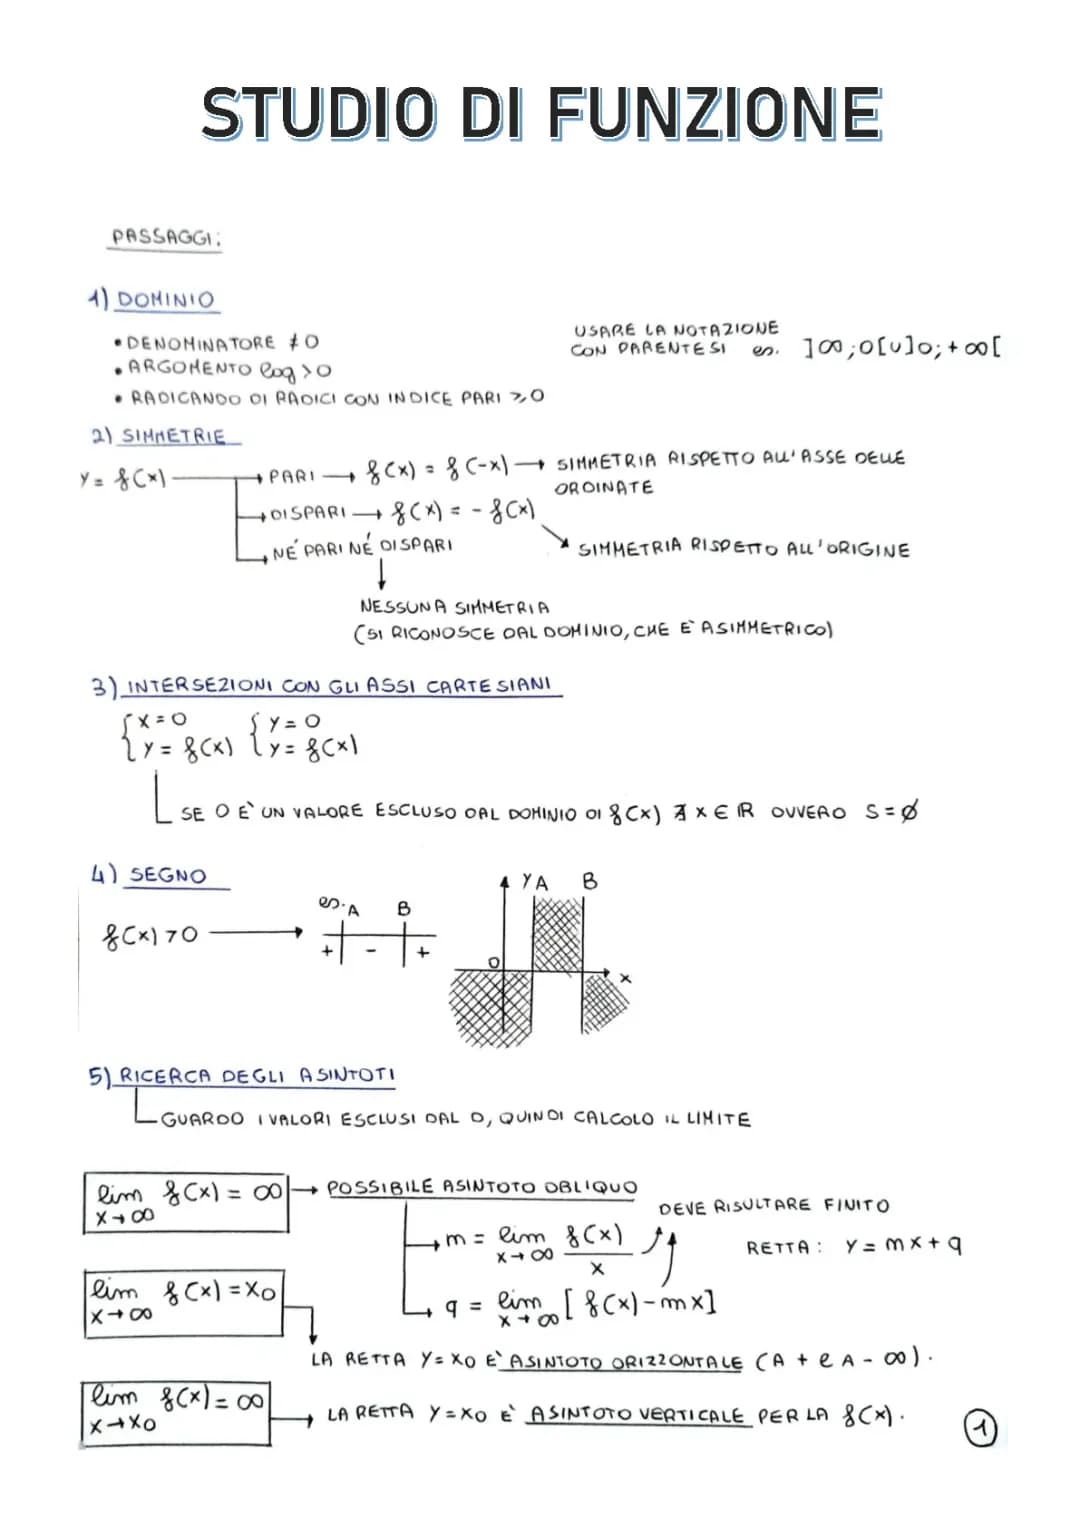 STUDIO DI FUNZIONE
PASSAGGI:
1) DOMINIO
• DENOMINATORE ≠ 0
• ARGOMENTO log > 0
• RADICANDO DI RADICI CON INDICE PARI ≥ 0
USARE LA NOTAZIONE
CON PARENTESI es. ]∞;0[∪]0;+∞[
2) SIMMETRIE
y = f(x) → PARI → f(x) = f(-x) → SIMMETRIA RISPETTO ALL'ASSE DELLE
ORDINATE
→ DISPARI → f(x) = - f(x)
→ NÉ PARI NÉ DISPARI
SIMMETRIA RISPETTO ALL'ORIGINE
NESSUNA SIMMETRIA
(SI RICONOSCE DAL DOMINIO, CHE E' ASIMMETRICO)
3) INTERSEZIONI CON GLI ASSI CARTESIANI
{x = 0 {y = 0
{y = f(x) {y = f(x)
SE 0 E' UN VALORE ESCLUSO DAL DOMINIO DI f(x) ∄ x ∈ ℝ OVVERO S = ∅
4) SEGNO
f(x) > 0 →
es. A B
+ - +
y A B
0
x
5) RICERCA DEGLI ASINTOTI
GUARDO I VALORI ESCLUSI DAL D, QUINDI CALCOLO IL LIMITE
lim f(x) = ∞ → POSSIBILE ASINTOTO OBLIQUO
x→∞
DEVE RISULTARE FINITO
m = lim f(x)
x→∞ x
RETTA: y = mx + q
lim f(x) = x0
x→∞
q = lim [f(x) - mx]
x→∞
LA RETTA y = x0 E' ASINTOTO ORIZZONTALE (A + e A - ∞).
lim f(x) = ∞
x→x0
LA RETTA y = x0 E' ASINTOTO VERTICALE PER LA f(x).
1